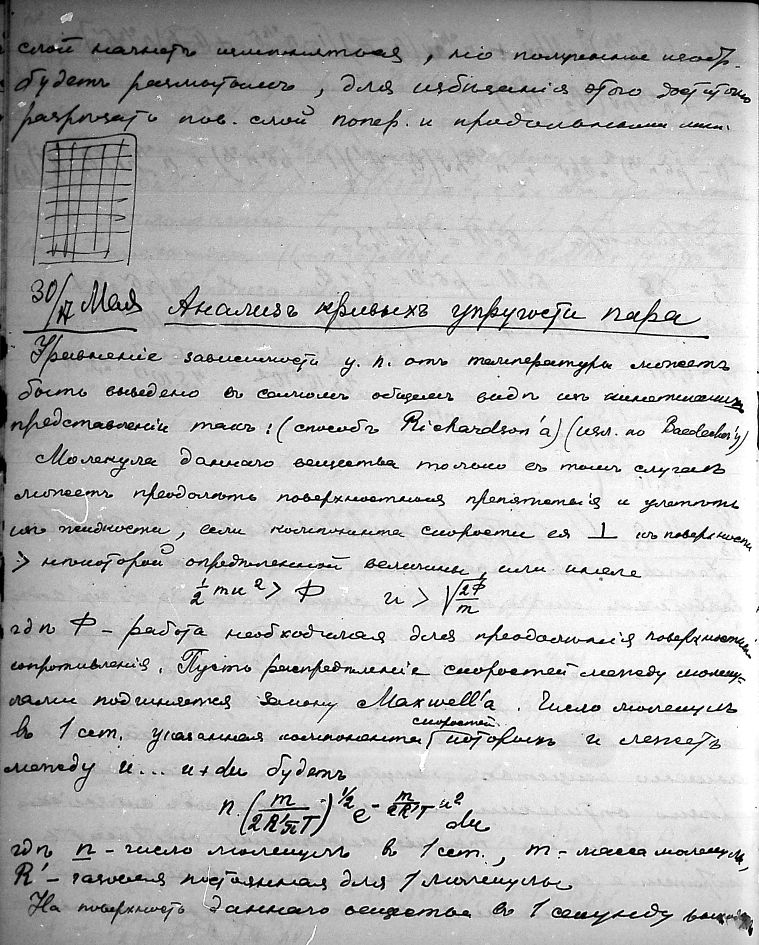 слой начнетъ изменяться, но полученное
будетъ размотаемъ, для избѣжанія этого достаточно
разрѣзать пов. слой попер. и продольными лин.
30/IV Мая Анализъ кривыхъ упругости пара
Уравненіе зависимости у. п. отъ температуры можетъ
быть выведено въ самомъ общемъ видѣ изъ кинетическихъ
представленій такъ: (способъ Richardson'a) (изл. по Baedecker'у)
Молекула даннаго вещества только въ томъ случаѣ
можетъ преодолѣть поверхностныя препятствія и улетѣть
изъ жидкости, если компонента скорости ея ⊥ къ поверхности
> нѣкоторой опредѣленной величины или иначе
½ mu² > Ф u > √(2Ф/m)
гдѣ Ф – работа необходимая для преодолѣнія поверхностнаго
сопротивленія. Пусть распредѣленіе скоростей между молеку-
лами подчиняется закону Maxwell'a. Число молекулъ
въ 1 cст. указанная компонента скоростей которыхъ u лежитъ
между u... u+du будетъ
n (m/2R'πT)^1/2 e^-m/2R'T u² du
гдѣ n – число молекулъ въ 1 cст., m – масса молекулы,
R' – газовая постоянная для 1 молекулы
На поверхность даннаго вещества въ 1 секунду